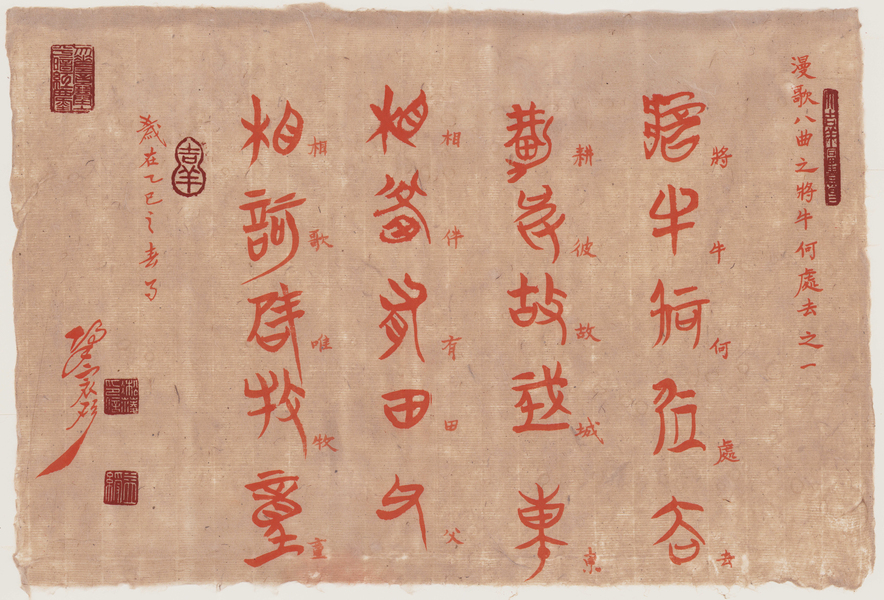 漫歌八曲之將牛何處去之一
將牛何處去
將牛何處去
耕彼故城東
耕彼故城東
相伴有田父
相伴有田父
相歌唯牧童
相歌唯牧童
吉羊
歲在乙巳之春月